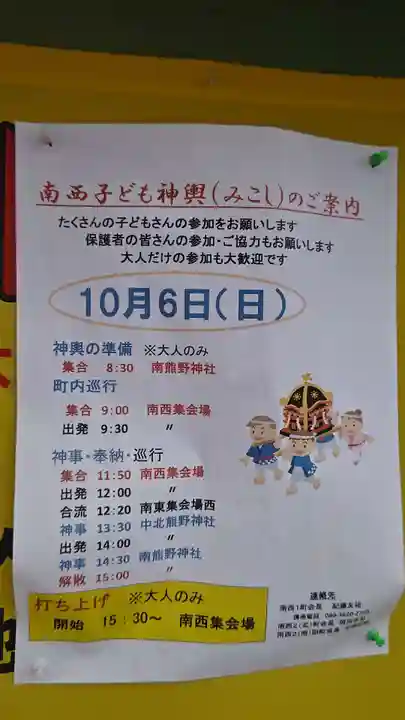 南西子ども神輿(みこし)のご案内
たくさんの子どもさんの参加をお願いします
保護者の皆さんの参加・ご協力もお願いします
大人だけの参加も大歓迎です
10月6日(日)
神輿の準備 ※大人のみ
集合 8:30 南熊野神社
町内巡行
集合 9:00 南西集会場
出発 9:30 〃
神事・奉納・巡行
集合 11:50 南西集会場
出発 12:00 〃
合流 12:20 南東集会場西
神事 13:30 中北熊野神社
出発 14:00 〃
神事 14:30 南熊野神社
解散 15:00 〃
打ち上げ ※大人のみ
開始 15:30～ 南西集会場
連絡先
南西1町会長
携帯電話
南西2(北)町会長
南西2(南)